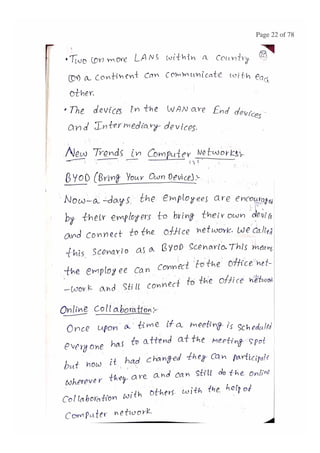 Page 22 of 78
• Two (or) more LANS within a Country
(or) a continent can communicate with each
other.
• The devices in the WAN are End devices
and Intermediary devices.
New Trends in Computer Networks:-
BYOD (Bring Your Own Device):-
Now-a-days the employees are encouraged
by their employers to bring their own device
and connect to the office network. We called
this scenario as a BYOD scenario. This means
the employee can connect to the office net-
-work and still connect to the office network
Online Collaboration:-
Once upon a time if a meeting is scheduled
everyone has to attend at the meeting spot
but now it had changed they can participate
wherever they are and can still do the online
Collaboration with others with the help of
Computer network.